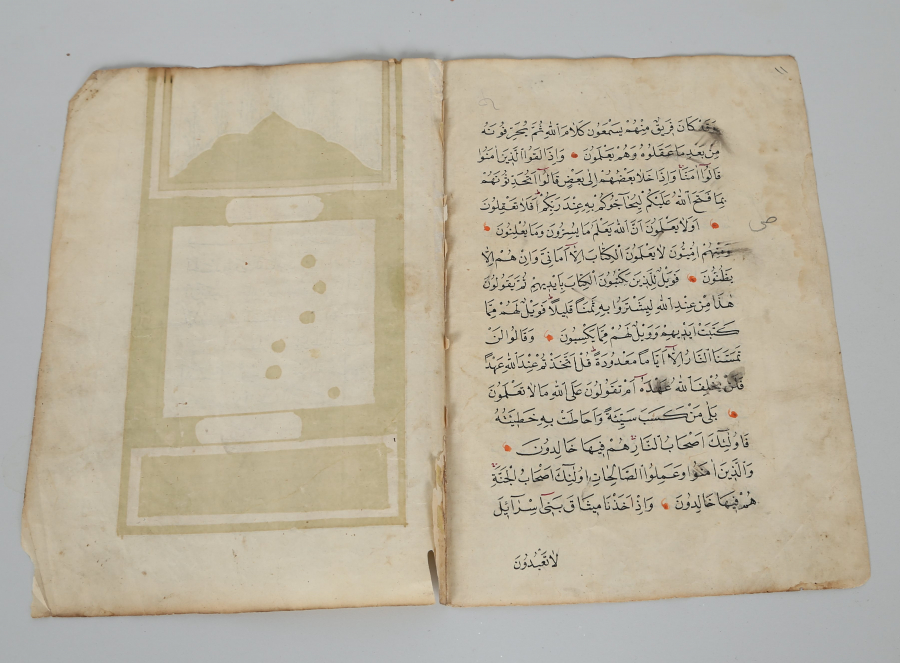 ١١
وَقَدْ كَانَ فَرِيقٌ مِنْهُمْ يَسْمَعُونَ كَلَامَ اللّٰهِ ثُمَّ يُحَرِّفُونَهُ
مِنْ بَعْدِ مَا عَقَلُوهُ وَهُمْ يَعْلَمُونَ وَاِذَا لَقُوا الَّذِينَ اٰمَنُوا
قَالُوا اٰمَنَّا وَاِذَا خَلَا بَعْضُهُمْ اِلٰى بَعْضٍ قَالُوا اَتُحَدِّثُونَهُمْ
بِمَا فَتَحَ اللّٰهُ عَلَيْكُمْ لِيُحَاجُّوكُمْ بِهِ عِنْدَ رَبِّكُمْ اَفَلَا تَعْقِلُونَ
اَوَلَا يَعْلَمُونَ اَنَّ اللّٰهَ يَعْلَمُ مَا يُسِرُّونَ وَمَا يُعْلِنُونَ
ص
وَمِنْهُمْ اُمِّيُّونَ لَا يَعْلَمُونَ الْكِتَابَ اِلَّا اَمَانِيَّ وَاِنْ هُمْ اِلَّا
يَظُنُّونَ فَوَيْلٌ لِلَّذِينَ يَكْتُبُونَ الْكِتَابَ بِاَيْدِيهِمْ ثُمَّ يَقُولُونَ
هٰذَا مِنْ عِنْدِ اللّٰهِ لِيَشْتَرُوا بِهِ ثَمَنًا قَلِيلًا فَوَيْلٌ لَهُمْ مِمَّا
كَتَبَتْ اَيْدِيهِمْ وَوَيْلٌ لَهُمْ مِمَّا يَكْسِبُونَ وَقَالُوا لَنْ
تَمَسَّنَا النَّارُ اِلَّا اَيَّامًا مَعْدُودَةً قُلْ اَتَّخَذْتُمْ عِنْدَ اللّٰهِ عَهْدًا
فَلَنْ يُخْلِفَ اللّٰهُ عَهْدَهُ اَمْ تَقُولُونَ عَلَى اللّٰهِ مَا لَا تَعْلَمُونَ
بَلٰى مَنْ كَسَبَ سَيِّئَةً وَاَحَاطَتْ بِهِ خَطِيئَتُهُ
فَاُولٰئِكَ اَصْحَابُ النَّارِ هُمْ فِيهَا خَالِدُونَ
وَالَّذِينَ اٰمَنُوا وَعَمِلُوا الصَّالِحَاتِ اُولٰئِكَ اَصْحَابُ الْجَنَّةِ
هُمْ فِيهَا خَالِدُونَ وَاِذْ اَخَذْنَا مِيثَاقَ بَنِي اِسْرَائِلَ
لَا تَعْبُدُونَ